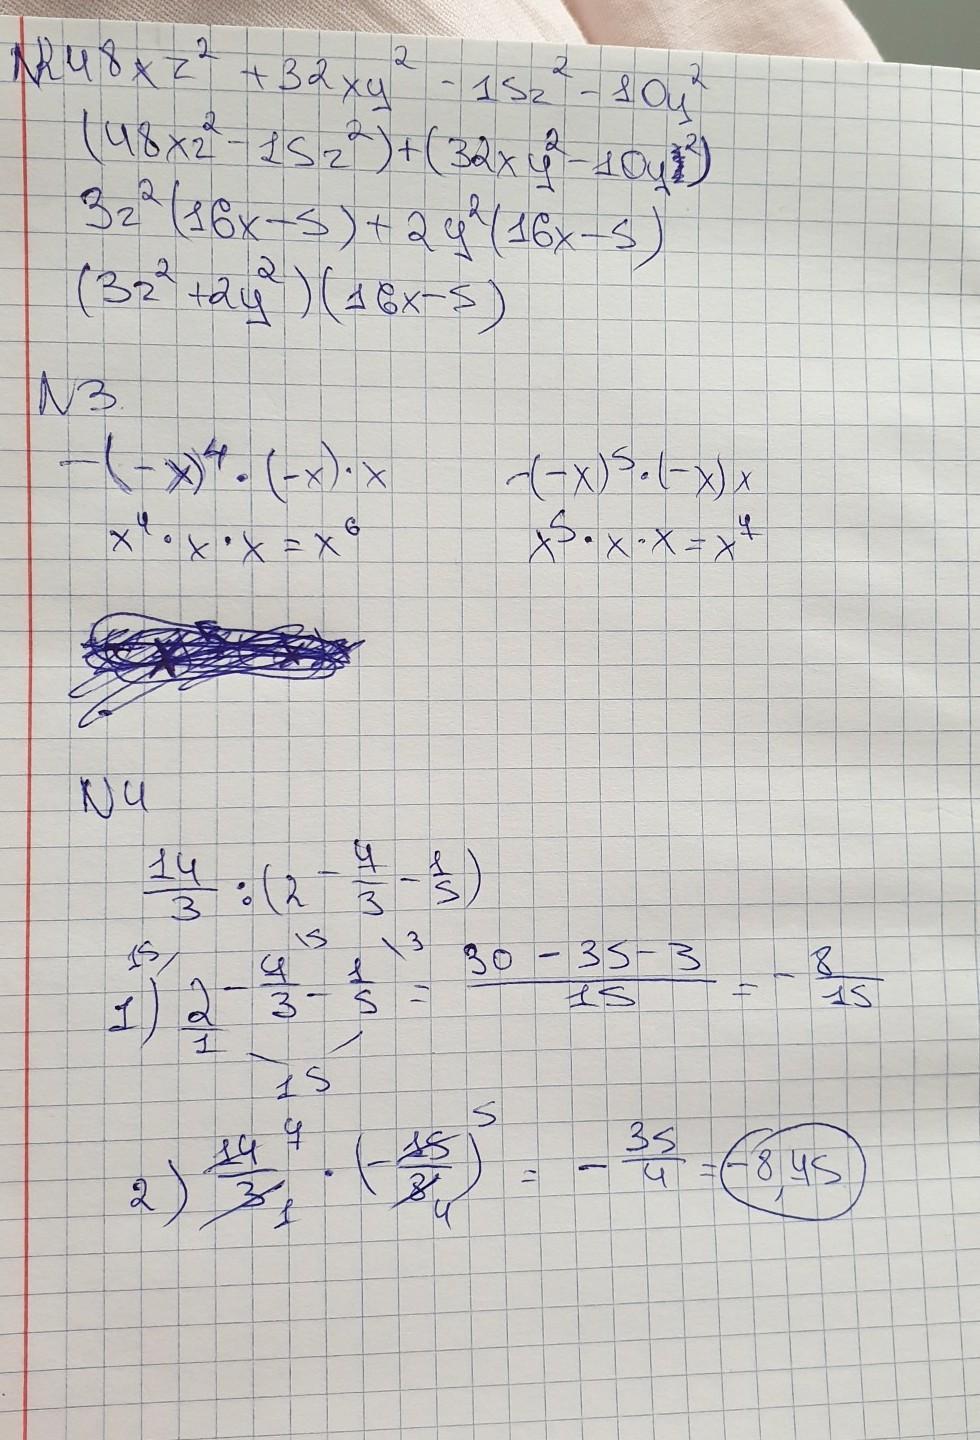 N2 48xz² + 32xy² - 15z² - 10y²
(48xz² - 15z²) + (32xy² - 10y²)
3z²(16x - 5) + 2y²(16x - 5)
(3z² + 2y²)(16x - 5)
N3.
-(-x)⁴ · (-x) · x
x⁴ · x · x = x⁶
-(-x)⁵ · (-x) x
x⁵ · x · x = x⁷
N4
14/3 : (2 - 7/3 - 1/5)
1) 2/1 \15 - 7/3 \5 - 1/5 \3 = (30 - 35 - 3)/15 = - 8/15
15
2) 14/3 7 1 · (- 15/8) 5 4 = - 35/4 = -8,75